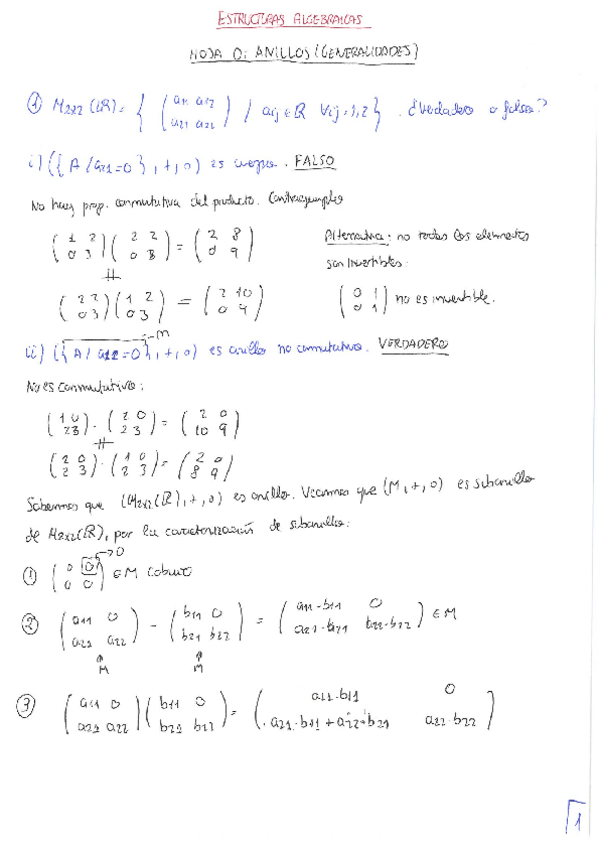 ESTRUCTURAS ALGEBRAICAS
HOJA 0: ANILLOS (GENERALIDADES)
① M2x2 (ℝ) = { ( a11 a12 / a21 a22 ) / aij ∈ ℝ ∀i,j = 1,2 } . ¿Verdadero o falso?
i) ({ A / a21 = 0 }, +, ·) es cuerpo. FALSO
No hay prop. conmutativa del producto. Contraejemplo
( 1 2 / 0 3 ) ( 2 2 / 0 3 ) = ( 2 8 / 0 9 )
Alternativa: no todos los elementos
son invertibles.
( 2 2 / 0 3 ) ( 1 2 / 0 3 ) = ( 2 10 / 0 9 )
( 0 1 / 0 1 ) no es invertible.
M
ii) ({ A / a12 = 0 }, +, ·) es anillo no conmutativo. VERDADERO
No es conmutativo:
( 1 0 / 2 3 ) · ( 2 0 / 2 3 ) = ( 2 0 / 10 9 )
( 2 0 / 2 3 ) · ( 1 0 / 2 3 ) = ( 2 0 / 8 9 )
Sabemos que (M2x2(ℝ), +, ·) es anillo. Veamos que (M, +, ·) es subanillo
de M2x2(ℝ), por la caracterización de subanillos:
① ( 0 0 / 0 0 ) → 0 ∈ M
② ( a11 0 / a21 a22 ) - ( b11 0 / b21 b22 ) = ( a11-b11 0 / a21-b21 a22-b22 ) ∈ M
M M
③ ( a11 0 / a21 a22 ) ( b11 0 / b21 b22 ) = ( a11·b11 0 / a21·b11 + a22·b21 a22·b22 )
1